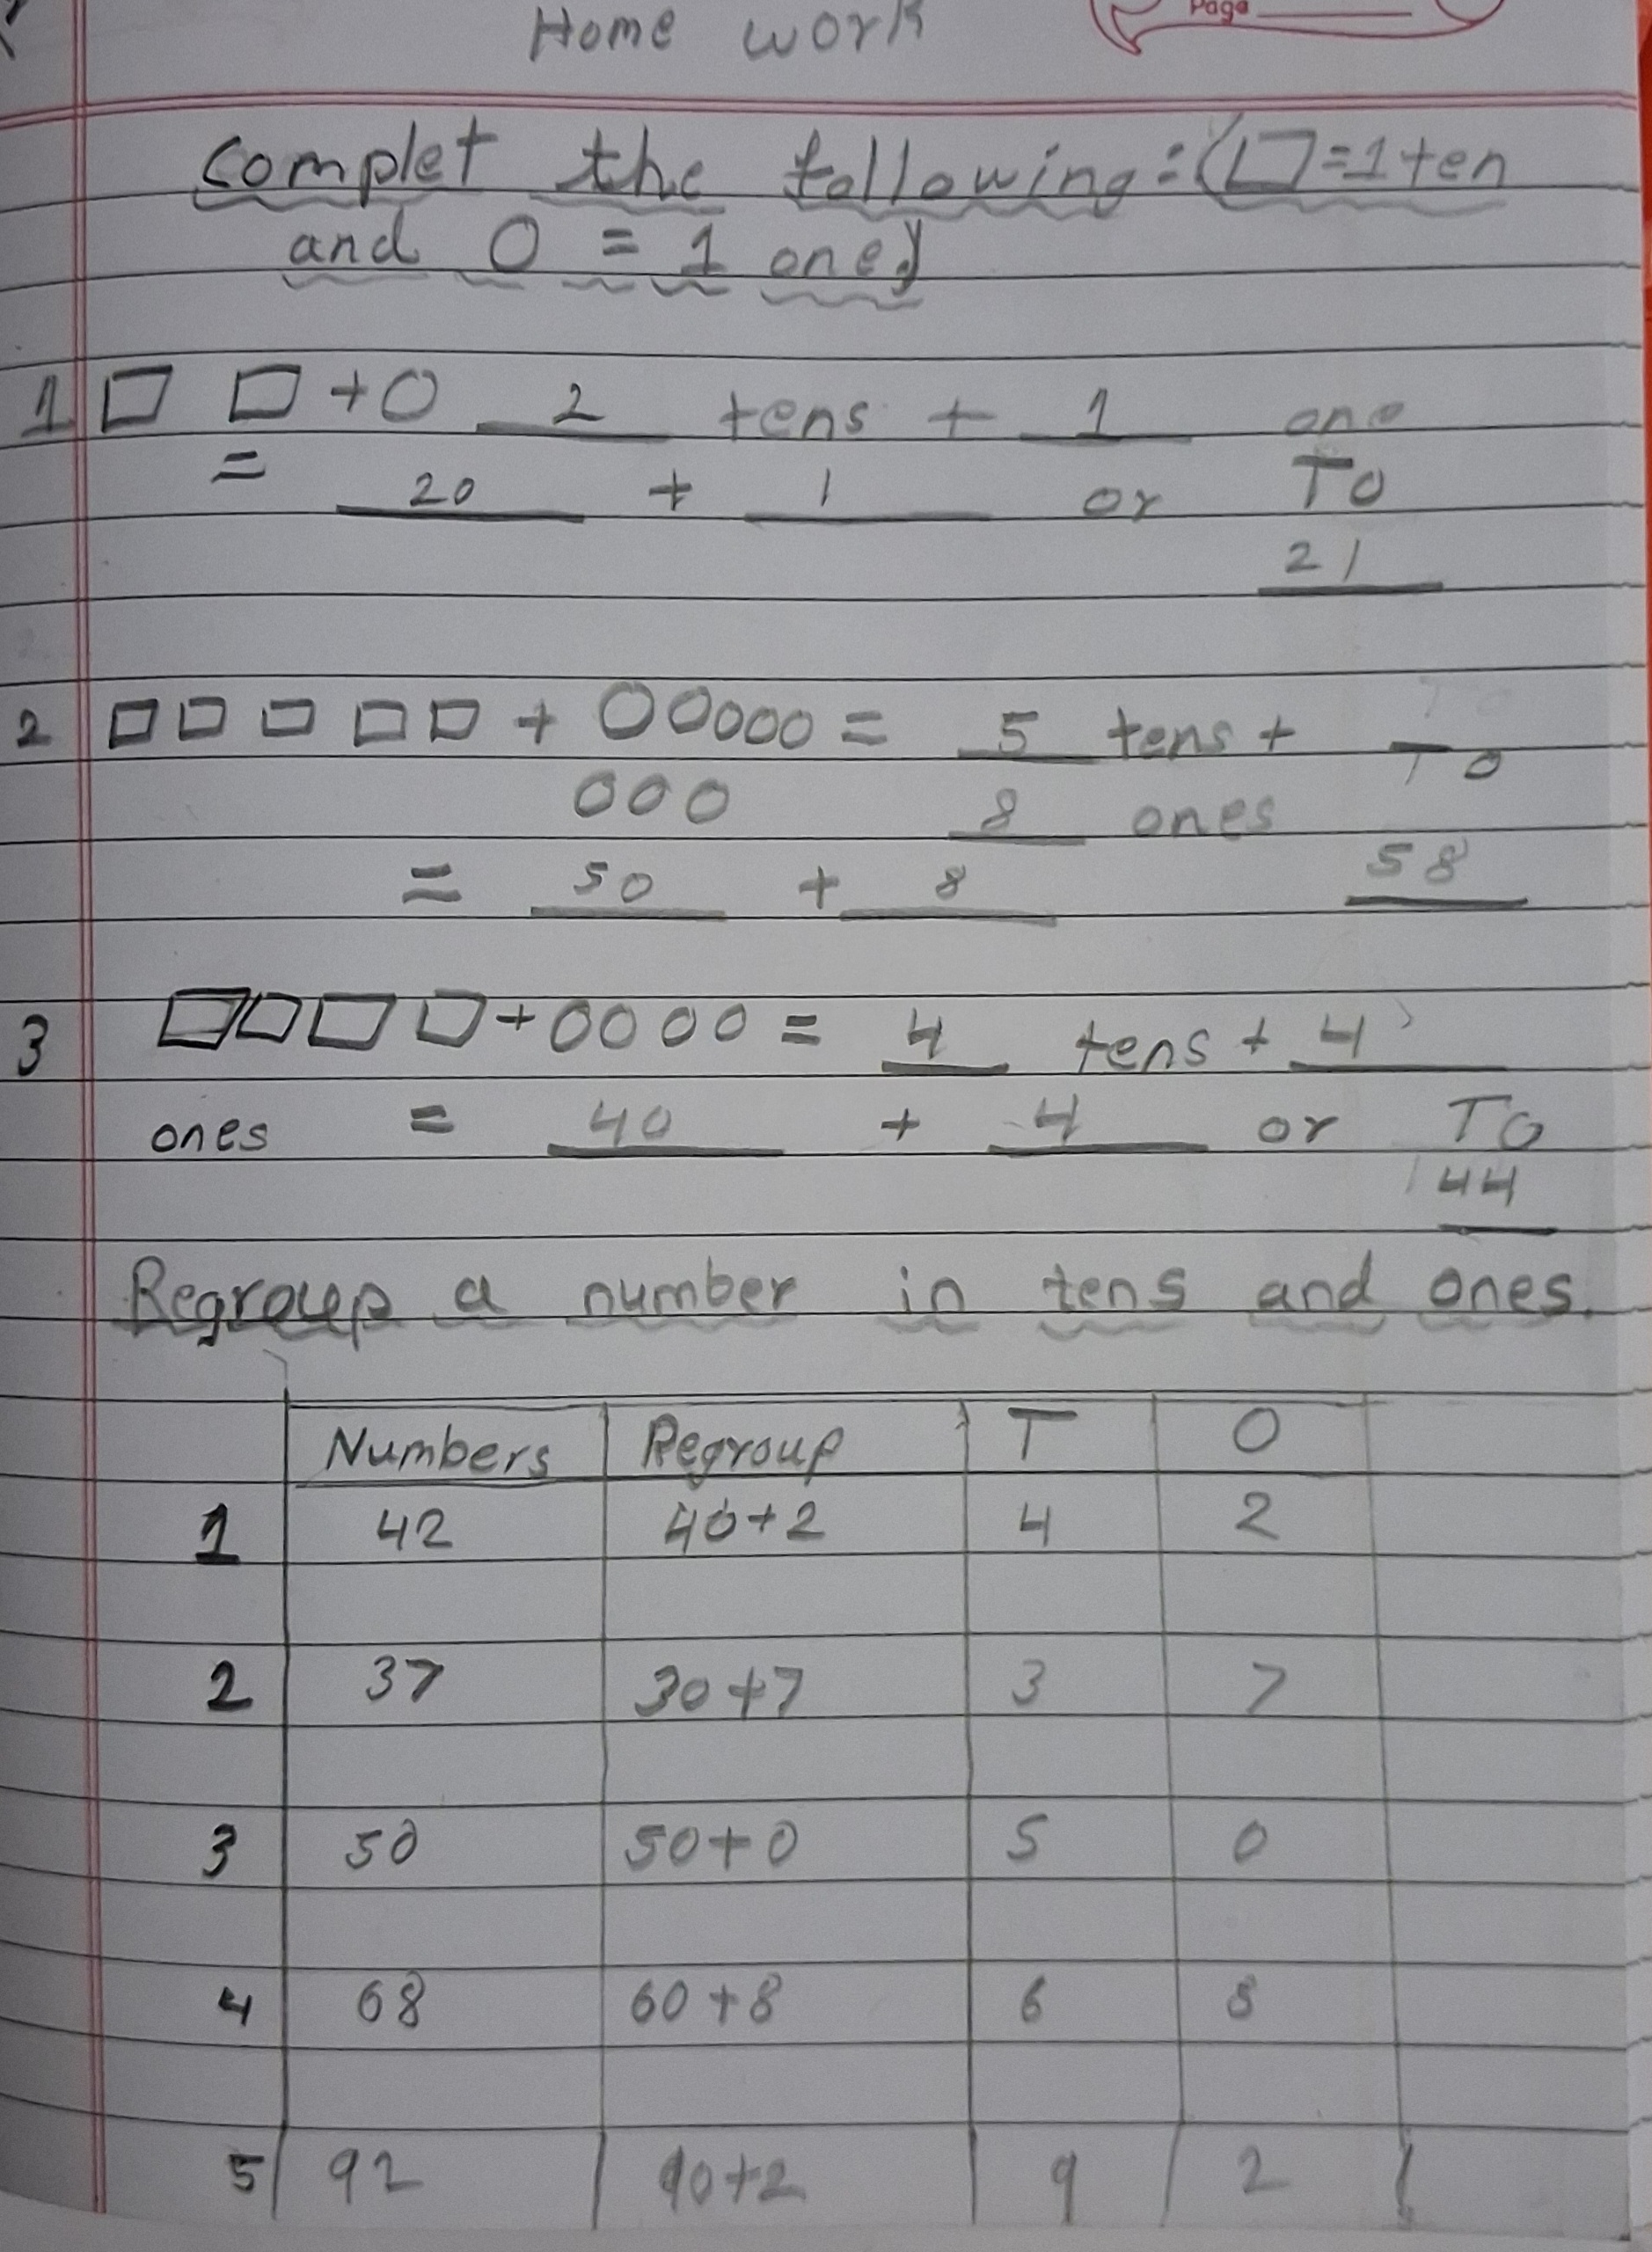 Page
Home work
Complet the following:(□=1 ten
and O = 1 one)
1 □ □ + O 2 tens + 1 one
= 20 + 1 or TO
21
2 □ □ □ □ □ + OOOOO = 5 tens + TO
OOO 8 ones
= 50 + 8 58
3 □ □ □ □ + OOOO = 4 tens + 4
ones = 40 + 4 or TO
44
Regroup a number in tens and ones.
Numbers Regroup T O
1 42 40+2 4 2
2 37 30+7 3 7
3 50 50+0 5 0
4 68 60+8 6 8
5 92 90+2 9 2